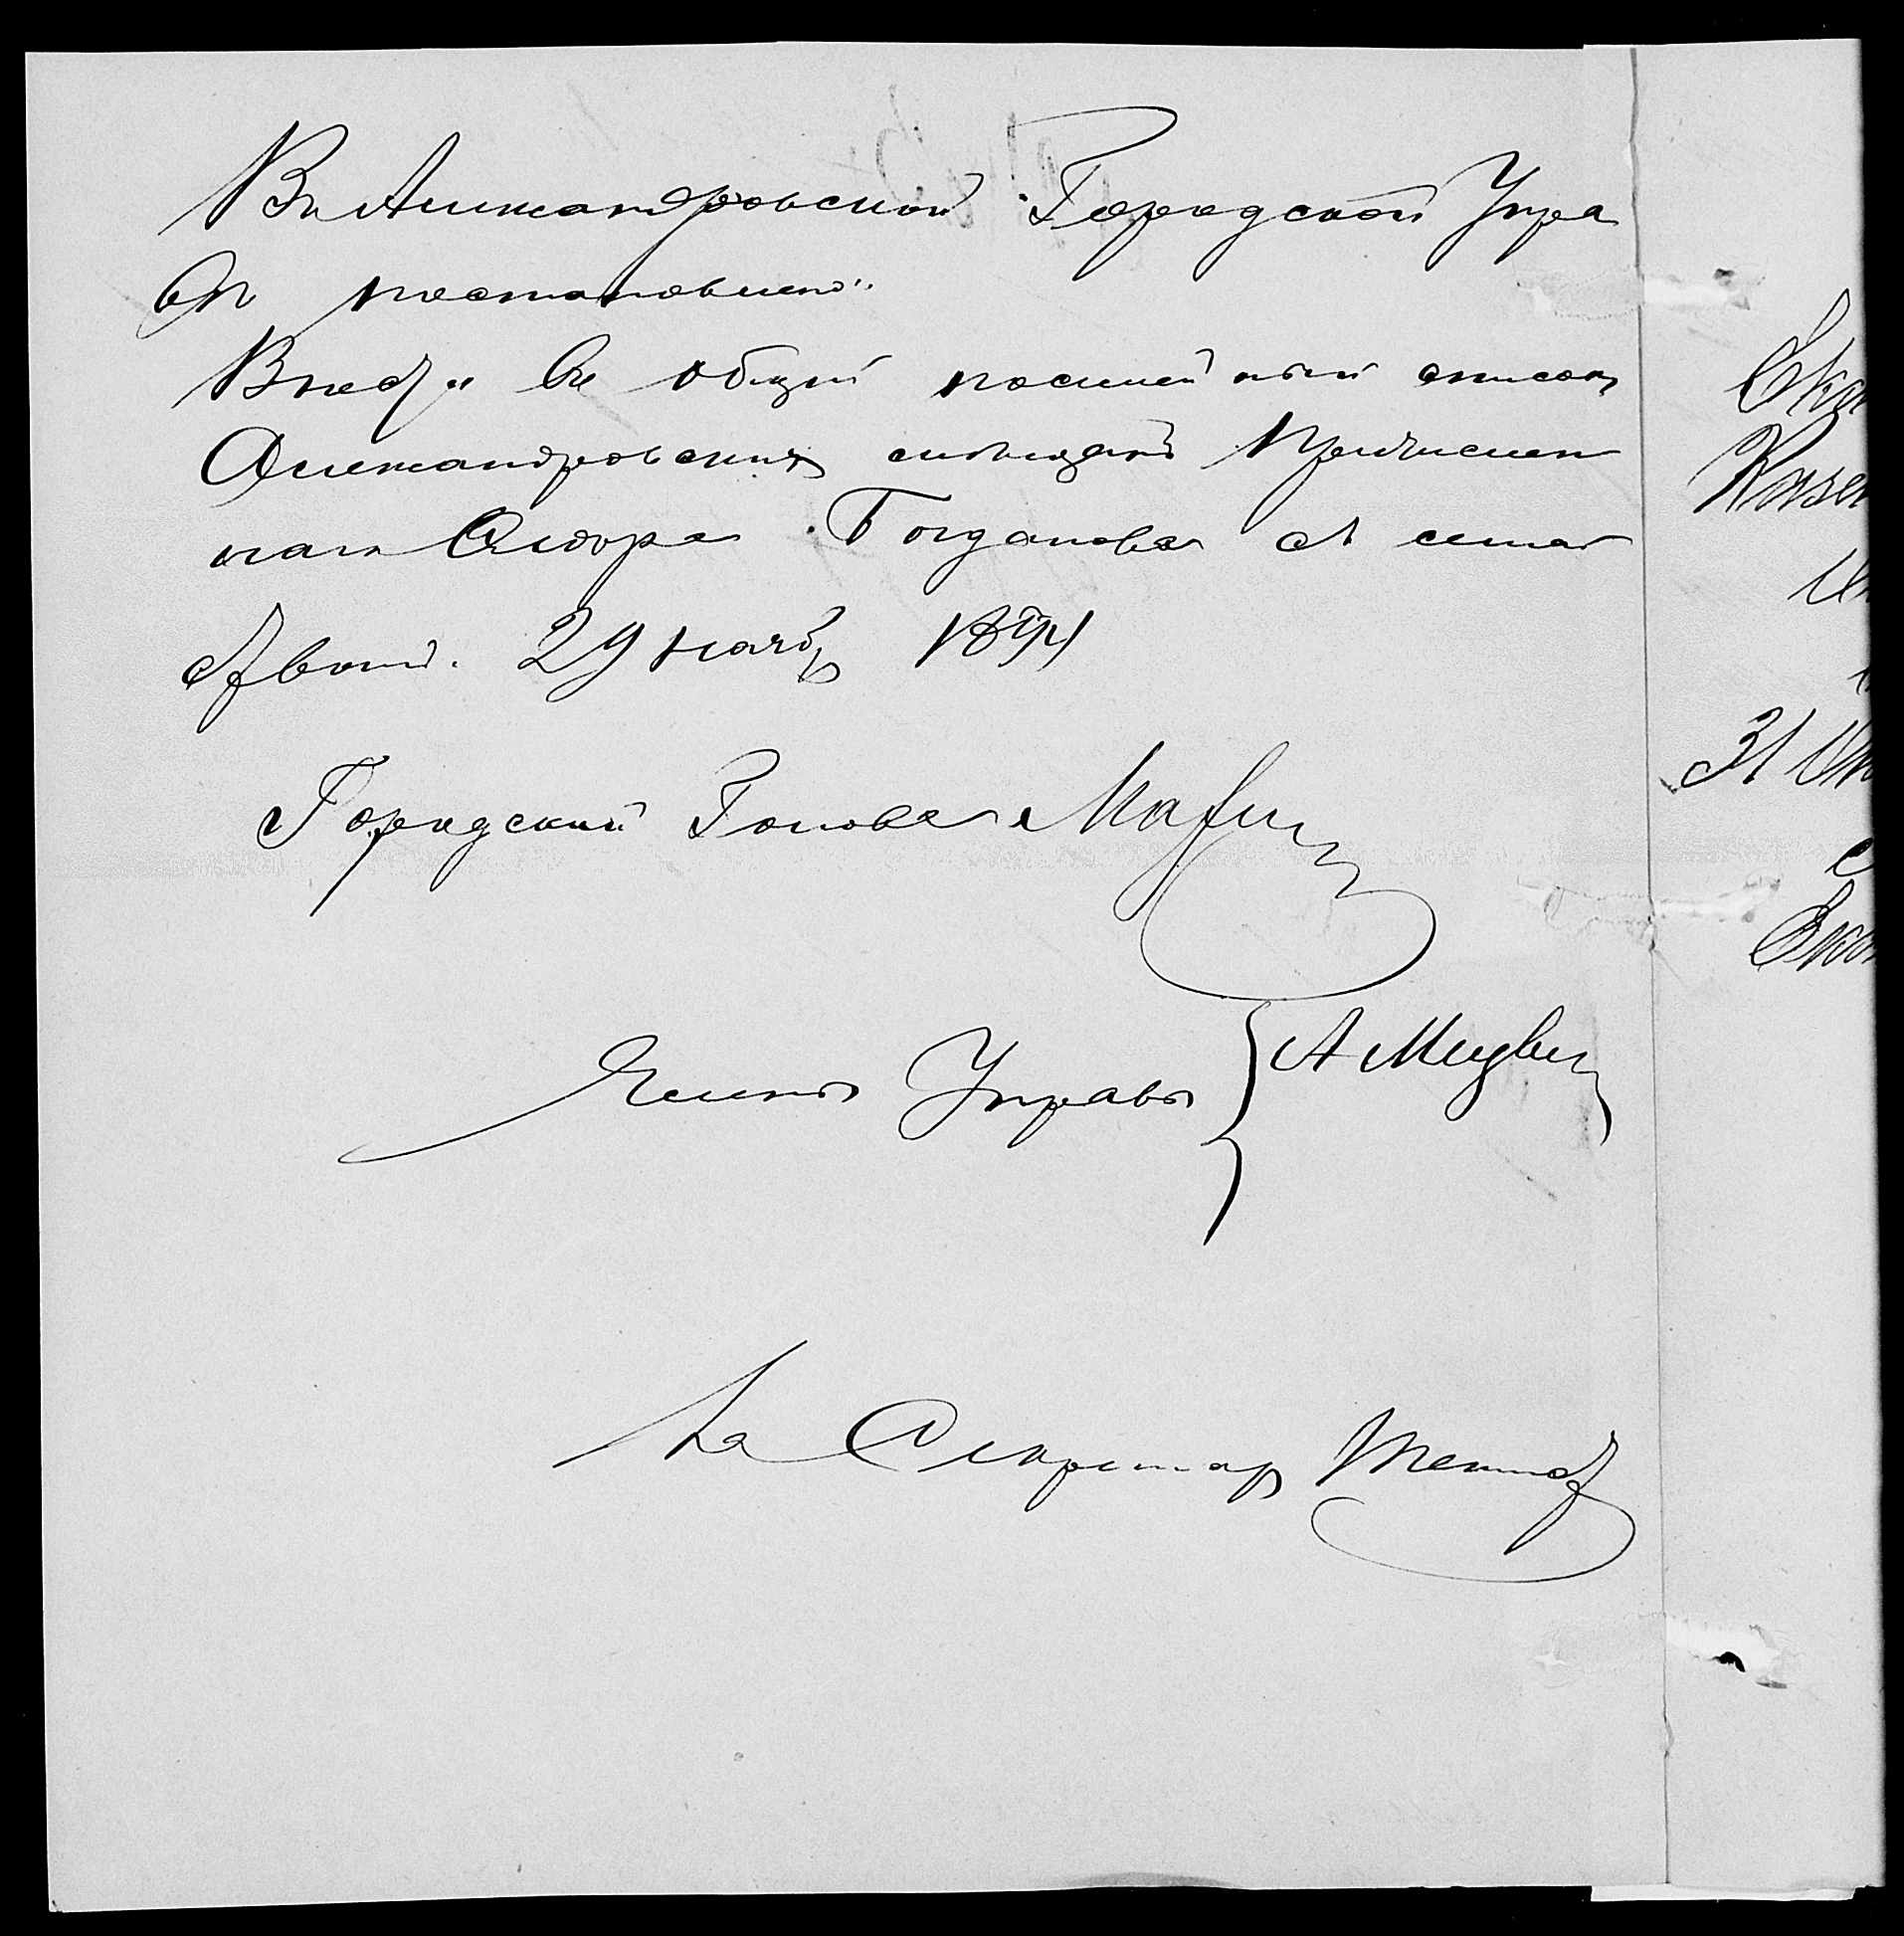 Въ Александровской Городской Упра
вѣ постановлено:
Внести въ общiй посемейный список
Александровскихъ мѣщанъ причислен
наго Ѳедора Богданова съ семей
ством. 29 Нояб 1874
Городской Голова
Члены Управы А
За Секретаря
31